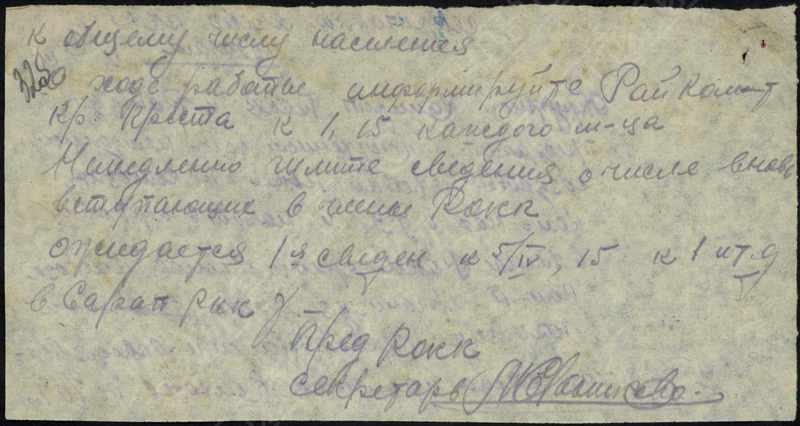 к общему числу населения
ходе работы информируйте Райком-т
Кр. Креста к 1, 15 каждого м-ца
Немедленно шлите сведения о числе вновь
вступающих в члены РОКК
ожидается 1я сведен к 5/IV, 15 к 1 и т.д
в Сарап рик
Пред РОКК
секретарь